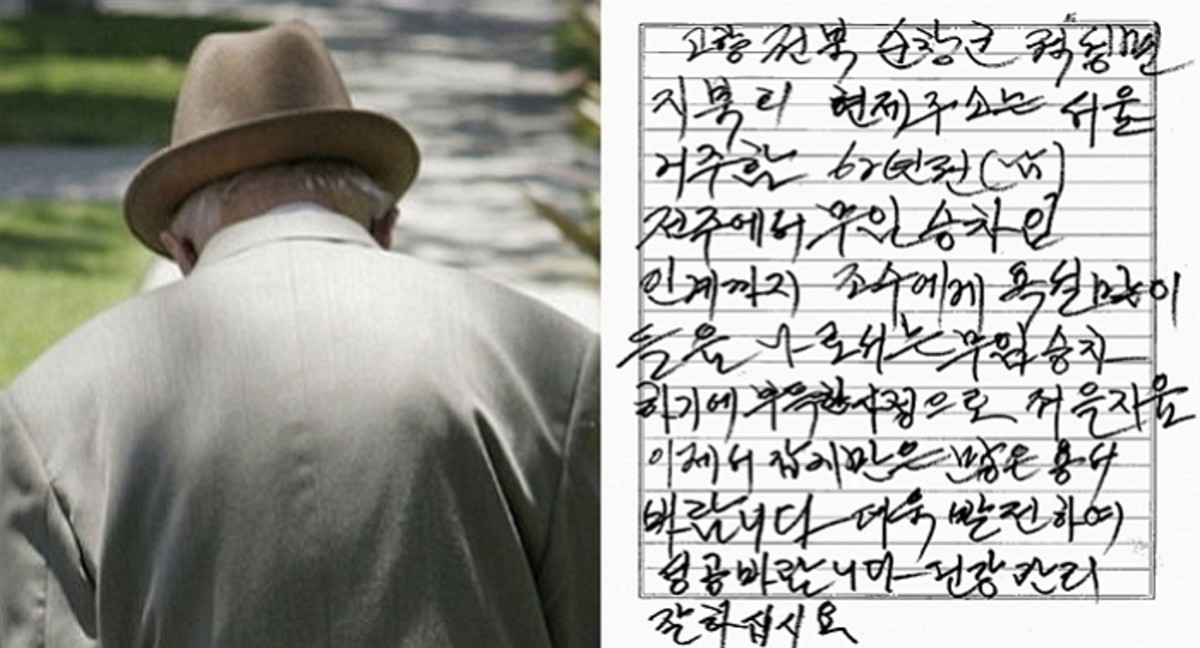 고향 전북 순창군 적성면
지북리 현제주소는 서울
거주함 62년전
전주에서 무임승차
인계까지 조수에게 욕설많이
들음 나로서는무임승차
하기에 부득한사정으로
이제서 갚지만은 많은용서
바랍니다 더욱 발전하여
성공바랍니다
잘하십시요